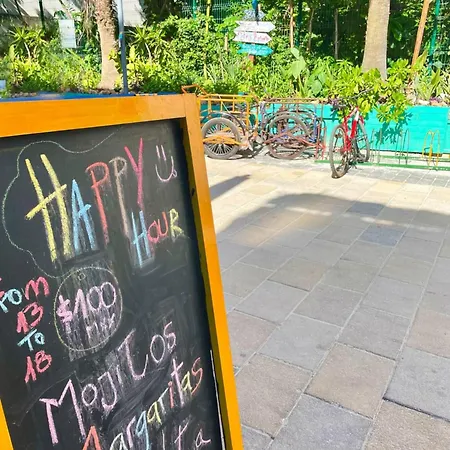 Happy
Hour
From
13
To
18
$100
Mojicos
Margaritas